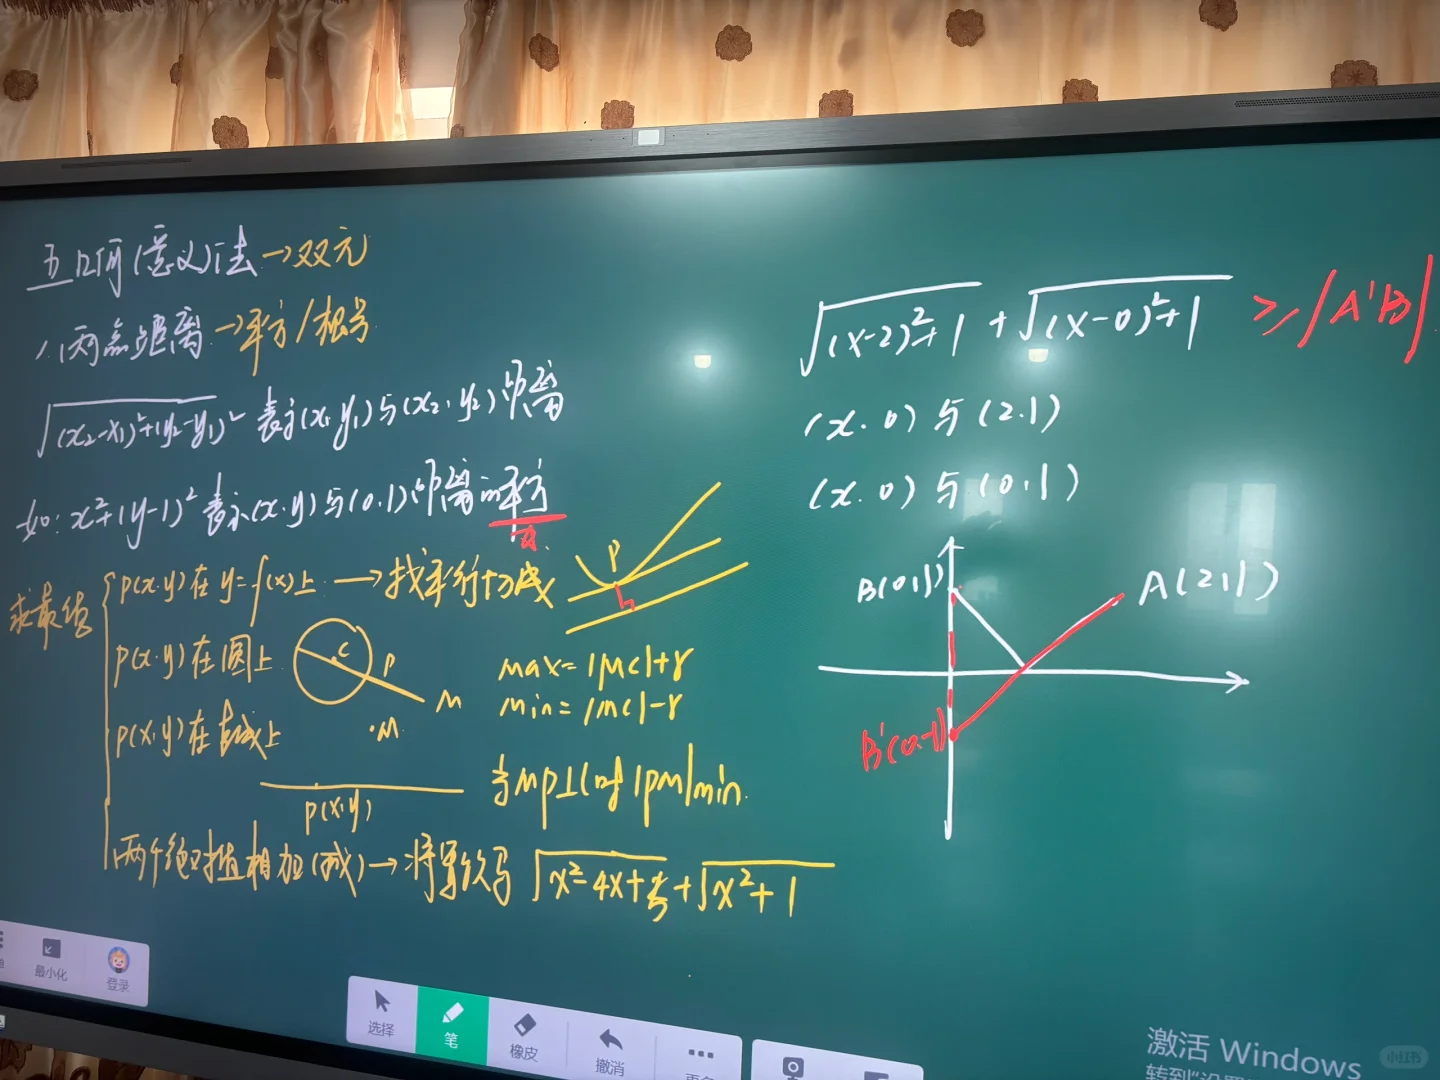 五 几何(意义)法→双元
1. 两点距离→平方/根号
√(x₂-x₁)²+(y₂-y₁)² 表示(x₁ y₁)与(x₂, y₂)距离
如: x²+(y-1)² 表示(x.y)与(0.1)距离的平方
求最值
p(x.y)在 y=f(x)上 → 找平行切线
P
h
p(x.y)在圆上
C
P
M
max=|MC|+r
min=|MC|-r
p(x.y)在直线上
·M
p(x.y)
当MP⊥l时|PM|min.
两个绝对值相加(减)→将军饮马 √x²-4x+5+√x²+1
√(x-2)²+1 + √(x-0)²+1 ≥|A'B|
(x.0)与(2.1)
(x.0)与(0.1)
B(0,1)
A(2,1)
B'(0.-1)
最小化
登录
选择
笔
橡皮
撤消
激活 Windows
小红书